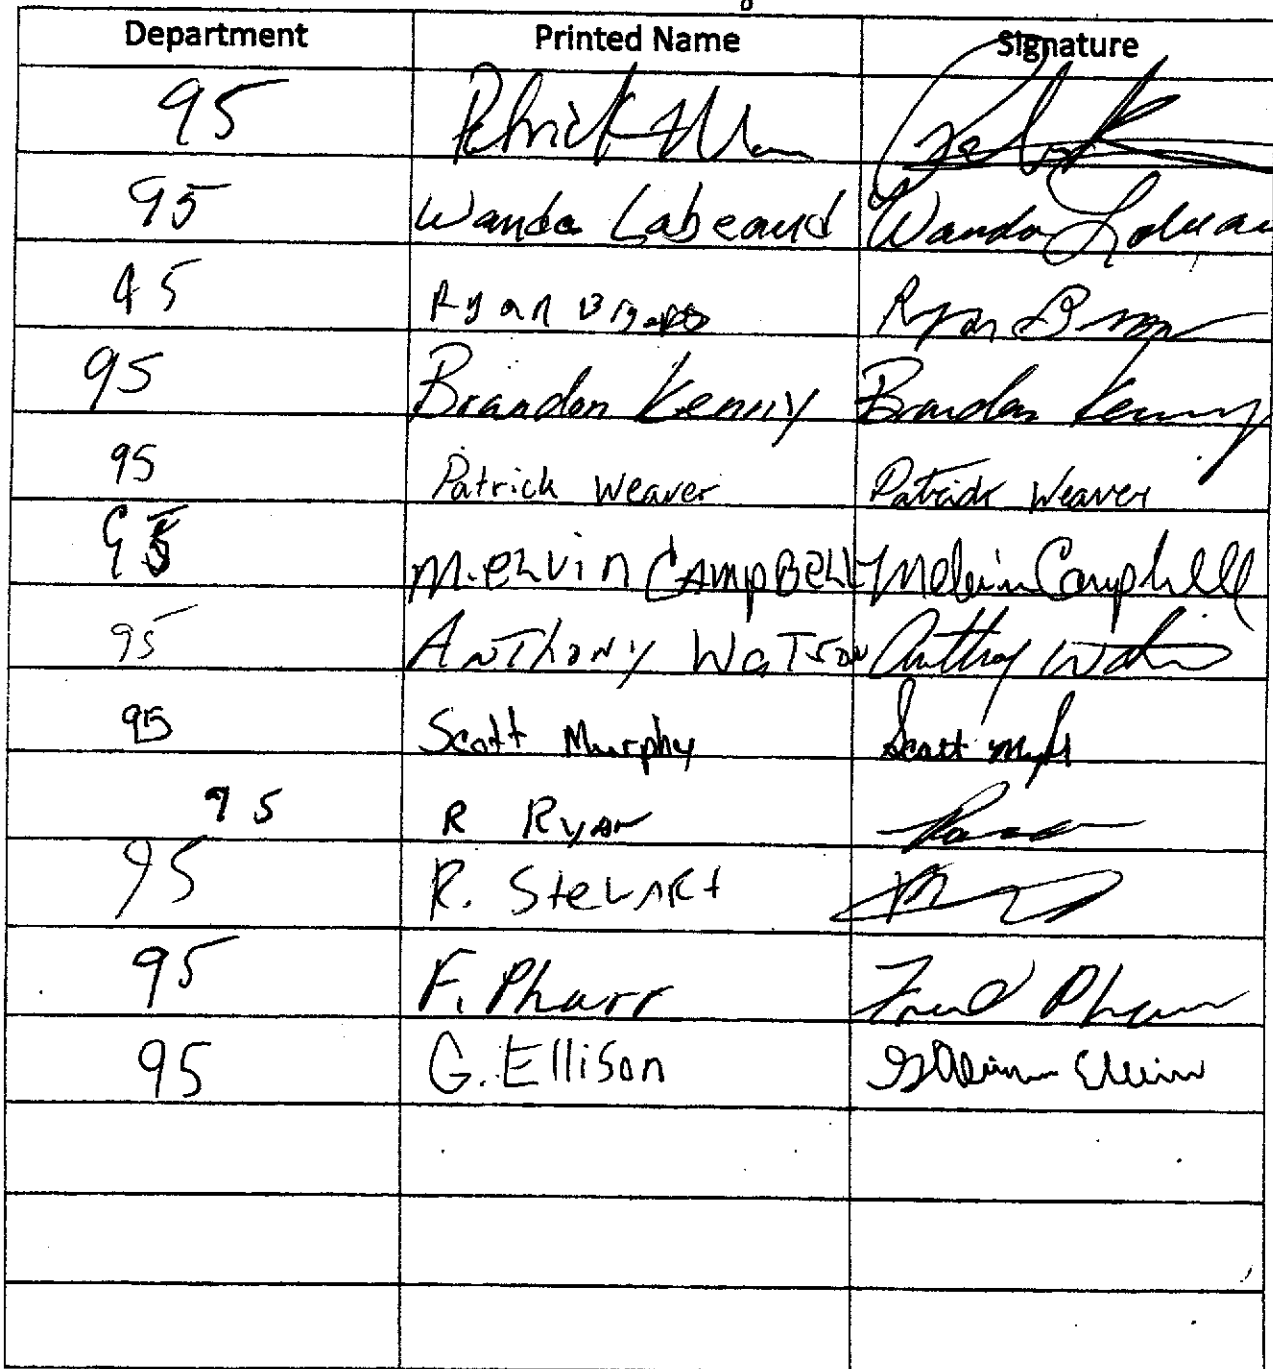 Department Printed Name Signature
95
95 Wanda Labeaud Wanda
45 Ryan Ryan
95 Brandon Kenny Brandon Kenny
95 Patrick Weaver Patrick Weaver
95 MELVIN CAMPBELL Melvin Campbell
95 ANThONY WaTSON Anthony
95 Scott Murphy Scott
95 R Ryan
95 R. StewARt
95 F. Pharr Fred Pharr
95 G. Ellison